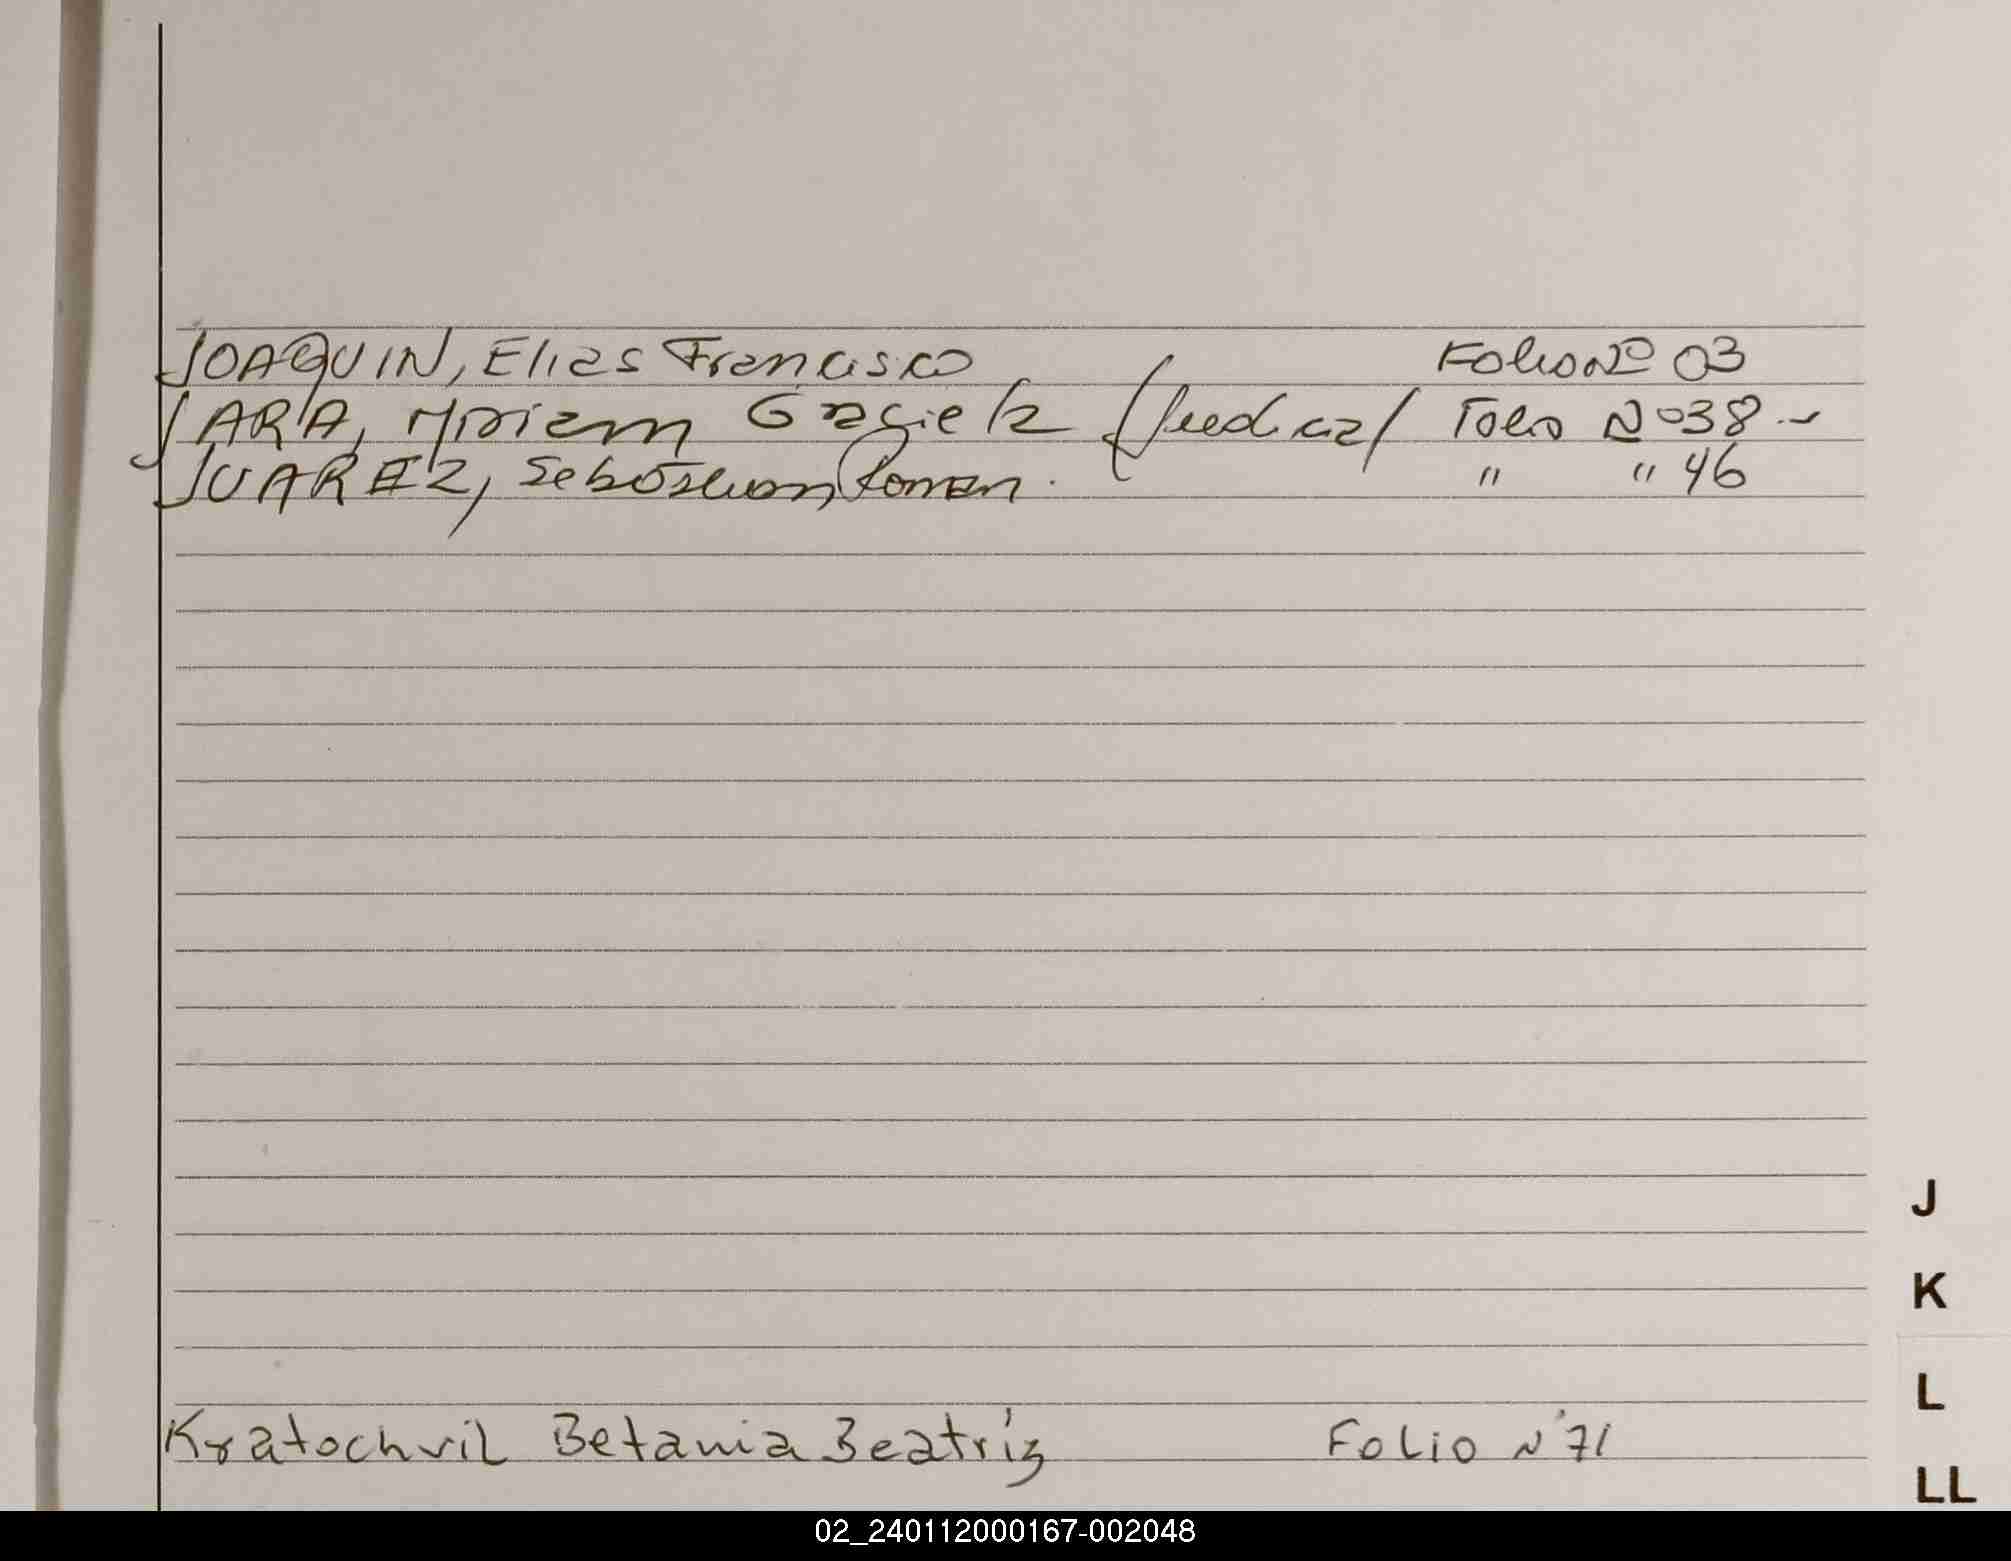 JOAQUIN, Elias Francisco Folio Nº 03
JARA, Miriam Graciela (Judicial) Folio Nº 38 -
JUAREZ, Sebastian Roman. " " 46
J
K
L
Kratochvil Betania Beatriz Folio N° 71
LL
02_240112000167-002048